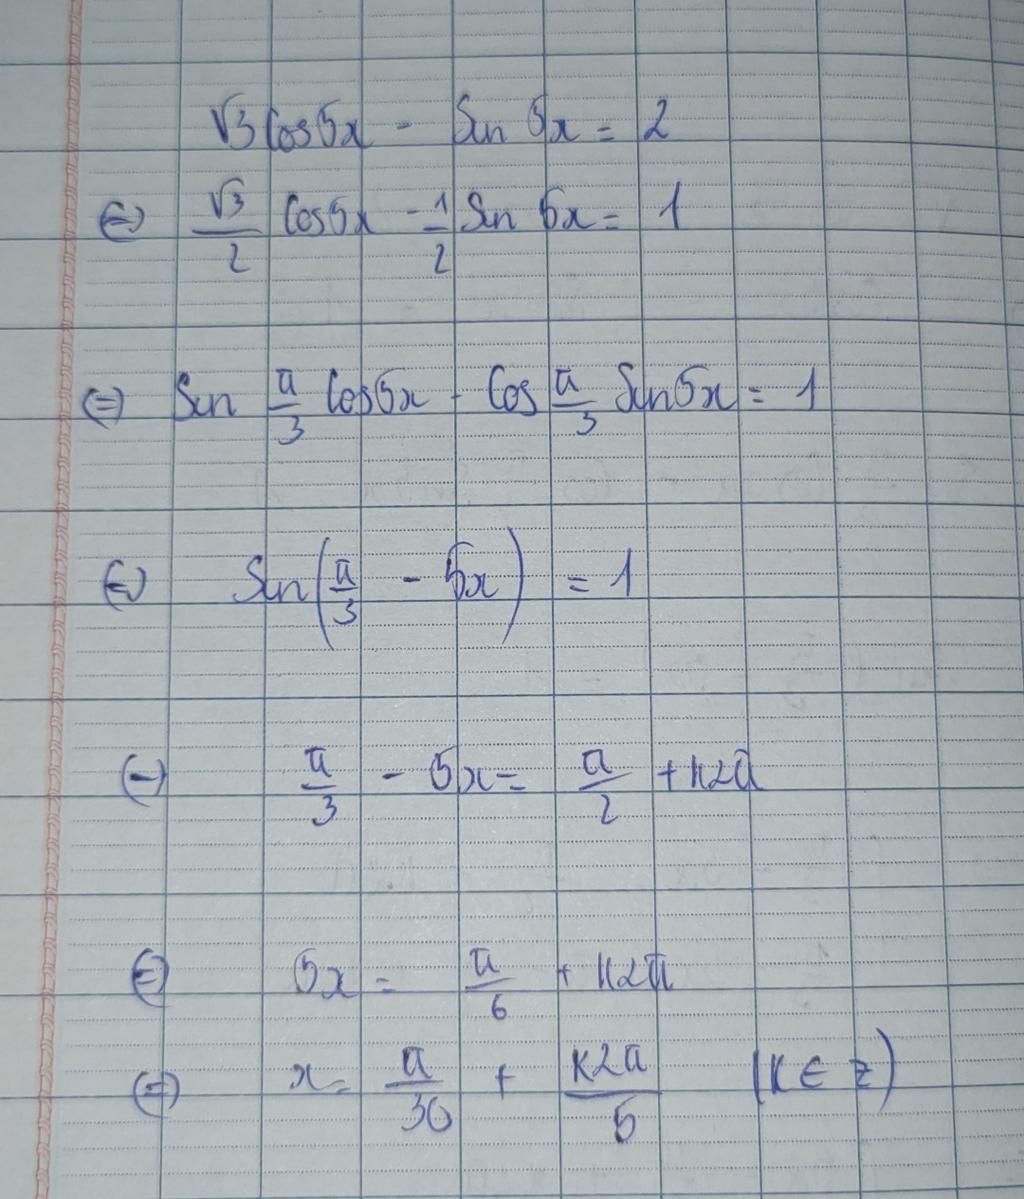 √3 cos5x - Sin 5x = 2
(=) √3/2 cos5x - 1/2 Sin 5x = 1
(=) Sin π/3 cos5x - cos π/3 Sin5x = 1
(=) Sin(π/3 - 5x) = 1
(=) π/3 - 5x = π/2 + k2π
(=) 5x = π/6 + k2π
(=) x = π/30 + k2π/5 (k ∈ z)